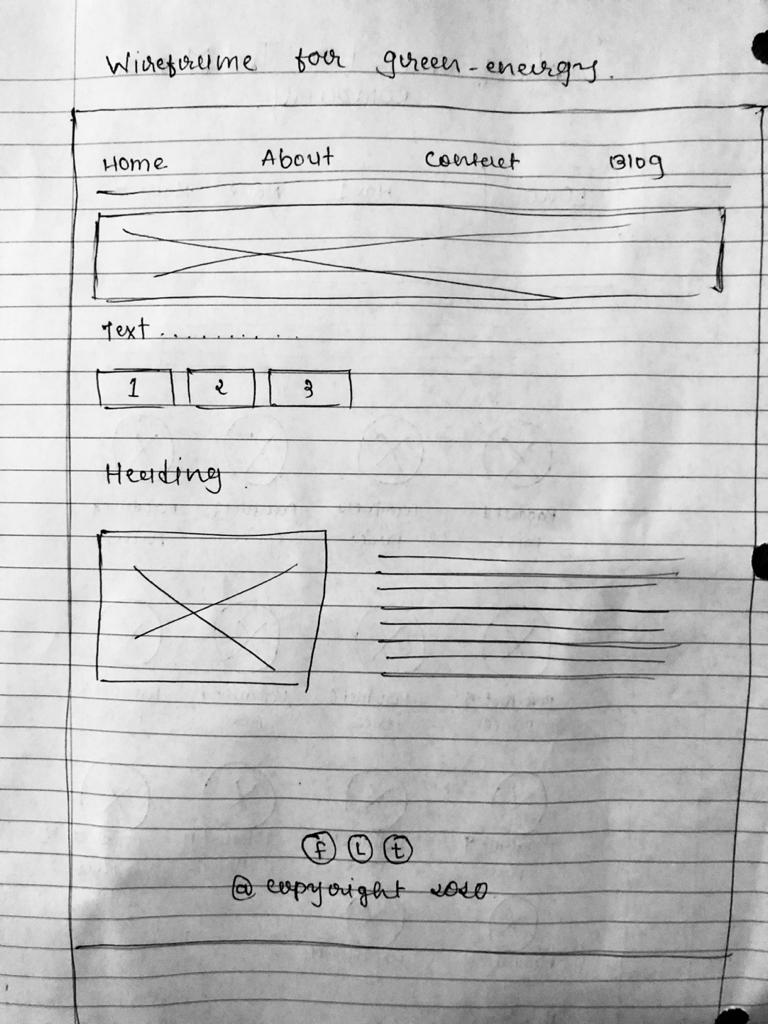 Wireframe for green-energy.
Home About Contact Blog
Text ..........
1 2 3
Heading
f L t
@ copyright 2020